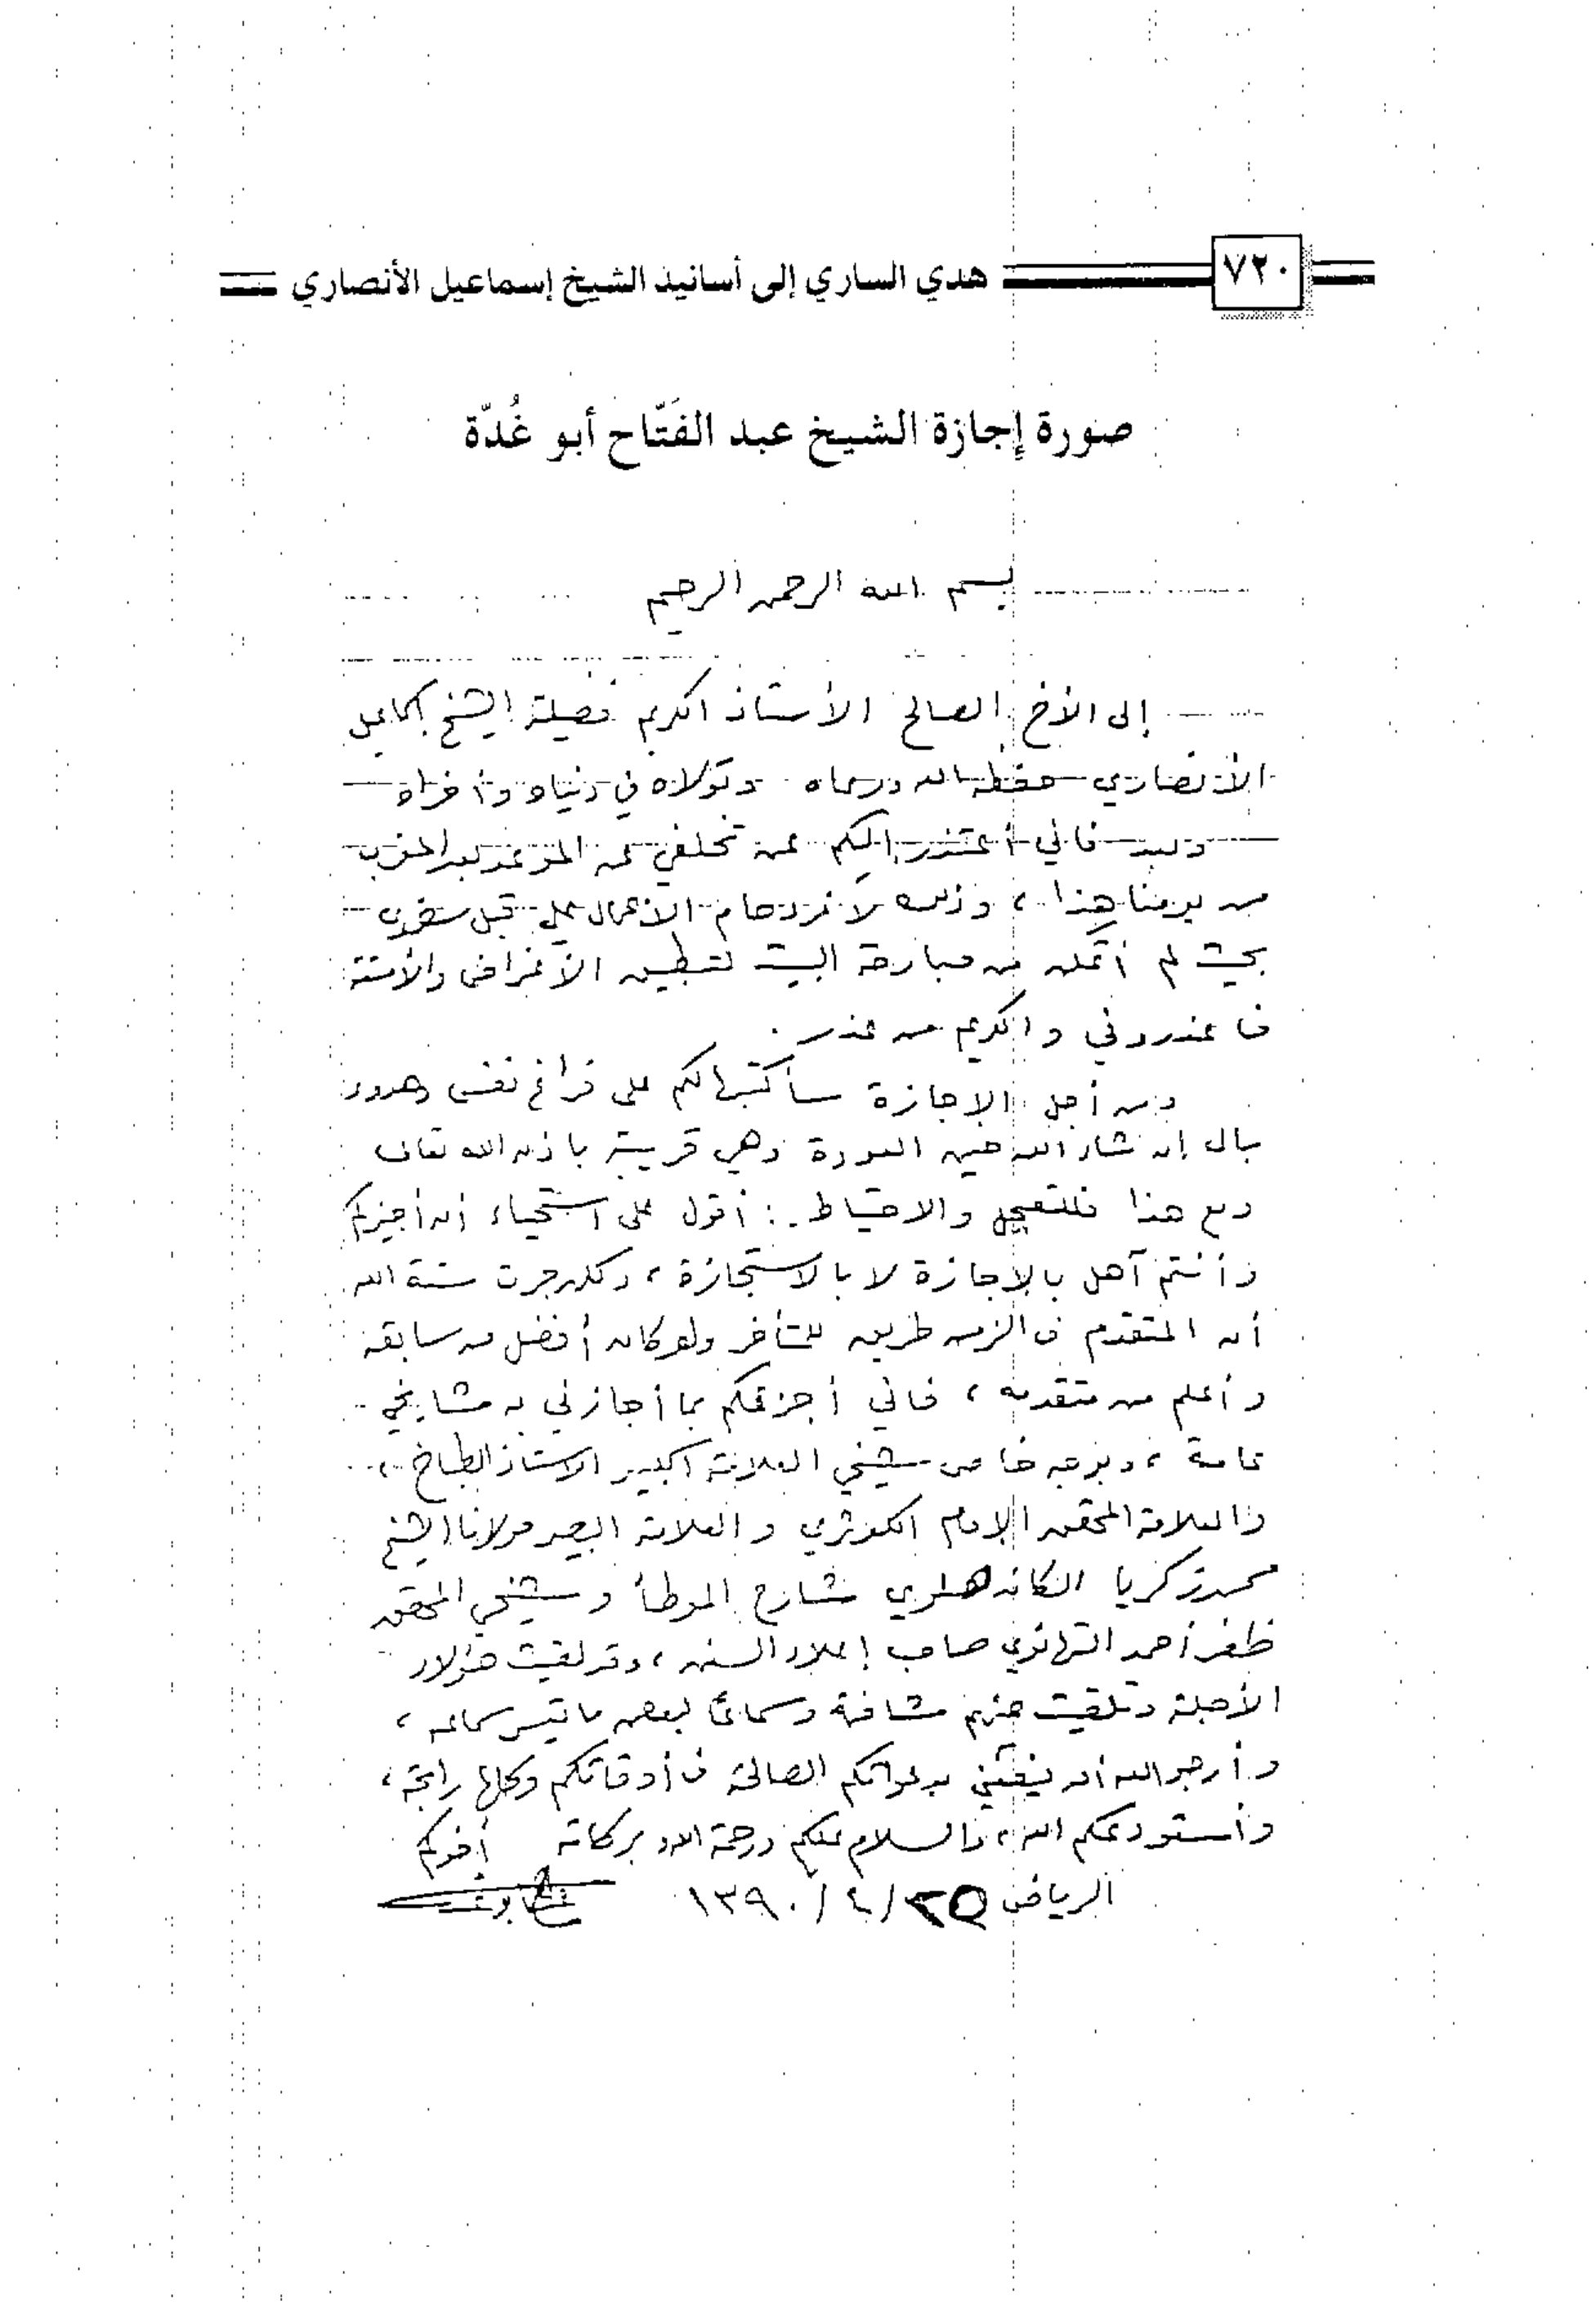 ٧٢٠
هدي الساري إلى أسانيد الشيخ إسماعيل الأنصاري
صورة إجازة الشيخ عبد الفَتّاح أبو غُدّة
بسم الله الرحمن الرحيم
إلى الأخ الصالح الأستاذ الكريم فضيلة الشيخ إسماعيل
الأنصاري حفظه الله ورعاه وتولاه في دنياه وأخراه
وبعد فاني أعتذر إليكم عن تخلفي عن الموعد بعد المغرب
من يومنا هذا ، وذلك لازدحام الأعمال علي قبل سفري
بحيث لم أتمكن من مبارحة البيت الأغراض والأمتعة
فاعذروني والكريم من عذر .
ومن أجل الإجازة سأكتبها لكم على فراغ نفس وهدوء
بال إن شاء الله حين العودة وهي قريبة باذن الله تعالى
ومع هذا فللتعجل والاحتياط : أقول على استحياء أن أجيزكم
وأنتم أهل بالإجازة لا بالاستجازة ، ولكن جرت سنة الله
أن المتقدم في الزمن طريق للمتأخر ولو كان أفضل من سابقه
وأعلم من متقدمه ، فاني أجزتكم بما أجازني به مشايخي
عامة ، وبوجه خاص شيخي العلامة الكبير الاستاذ الطباخ ،
والعلامة المحقق الإمام الكوثري والعلامة البصير مولانا الشيخ
محمد زكريا الكاندهلوي شارح الموطأ وشيخي المحقق
ظفر أحمد التهانوي صاحب إعلاء السنن ، وقد لقيت هؤلاء
الأجلة وتلقيت عنهم مشافهة وسماعًا لبعض ما تيسر سماعه ،
وأرجو الله أن ينفعني بدعواتكم الصالحة في أوقاتكم وكلها رابحة ،
وأستودعكم الله ، والسلام عليكم ورحمة الله وبركاته أخوكم
الرياض ٢٥/٤/١٣٩٠